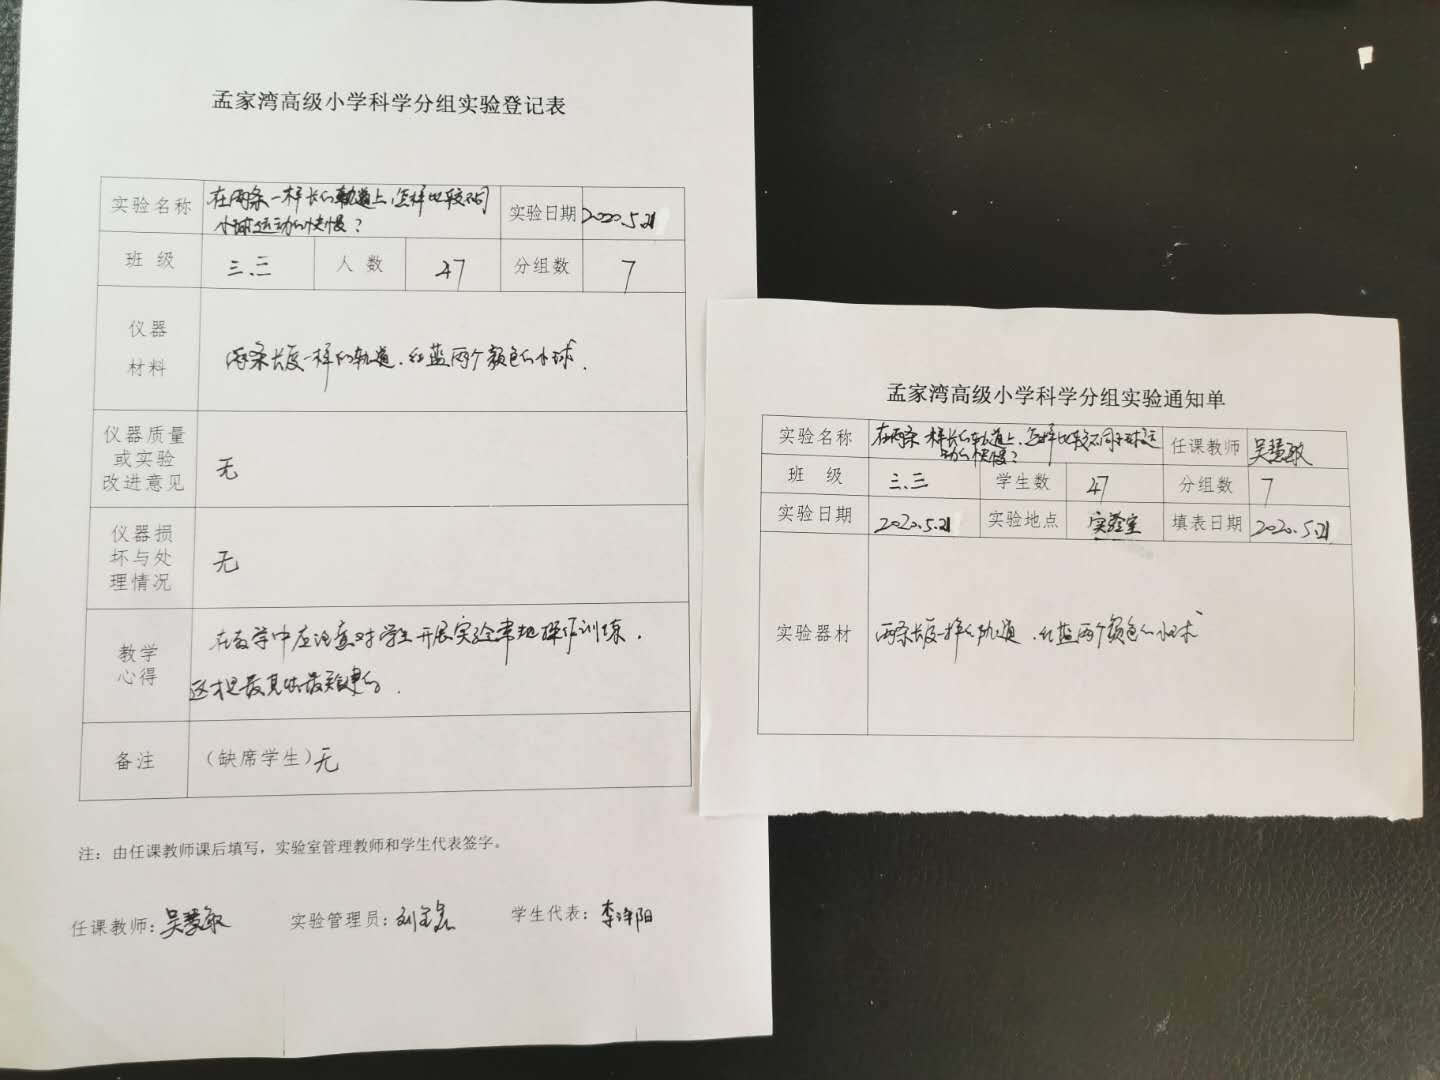 孟家湾高级小学科学分组实验登记表
实验名称 在两条一样长的轨道上,怎样比较不同
小球运动的快慢? 实验日期 2020.5.21
班 级 三.三 人 数 47 分组数 7
仪器
材料 两条长度一样的轨道.红蓝两个颜色的小球.
仪器质量
或实验
改进意见 无
仪器损
坏与处
理情况 无
教学
心得 在教学中应注意对学生开展实验常规操作训练.
这才是最具体最关键的.
备注 (缺席学生)无
注:由任课教师课后填写,实验室管理教师和学生代表签字。
任课教师:吴慧敏 实验管理员:刘 学生代表:李泽阳
孟家湾高级小学科学分组实验通知单
实验名称 在两条一样长的轨道上.怎样比较不同小球运
动的快慢? 任课教师 吴慧敏
班 级 三.三 学生数 47 分组数 7
实验日期 2020.5.21 实验地点 实验室 填表日期 2020.5.21
实验器材 两条长度一样的轨道.红蓝两个颜色的小球